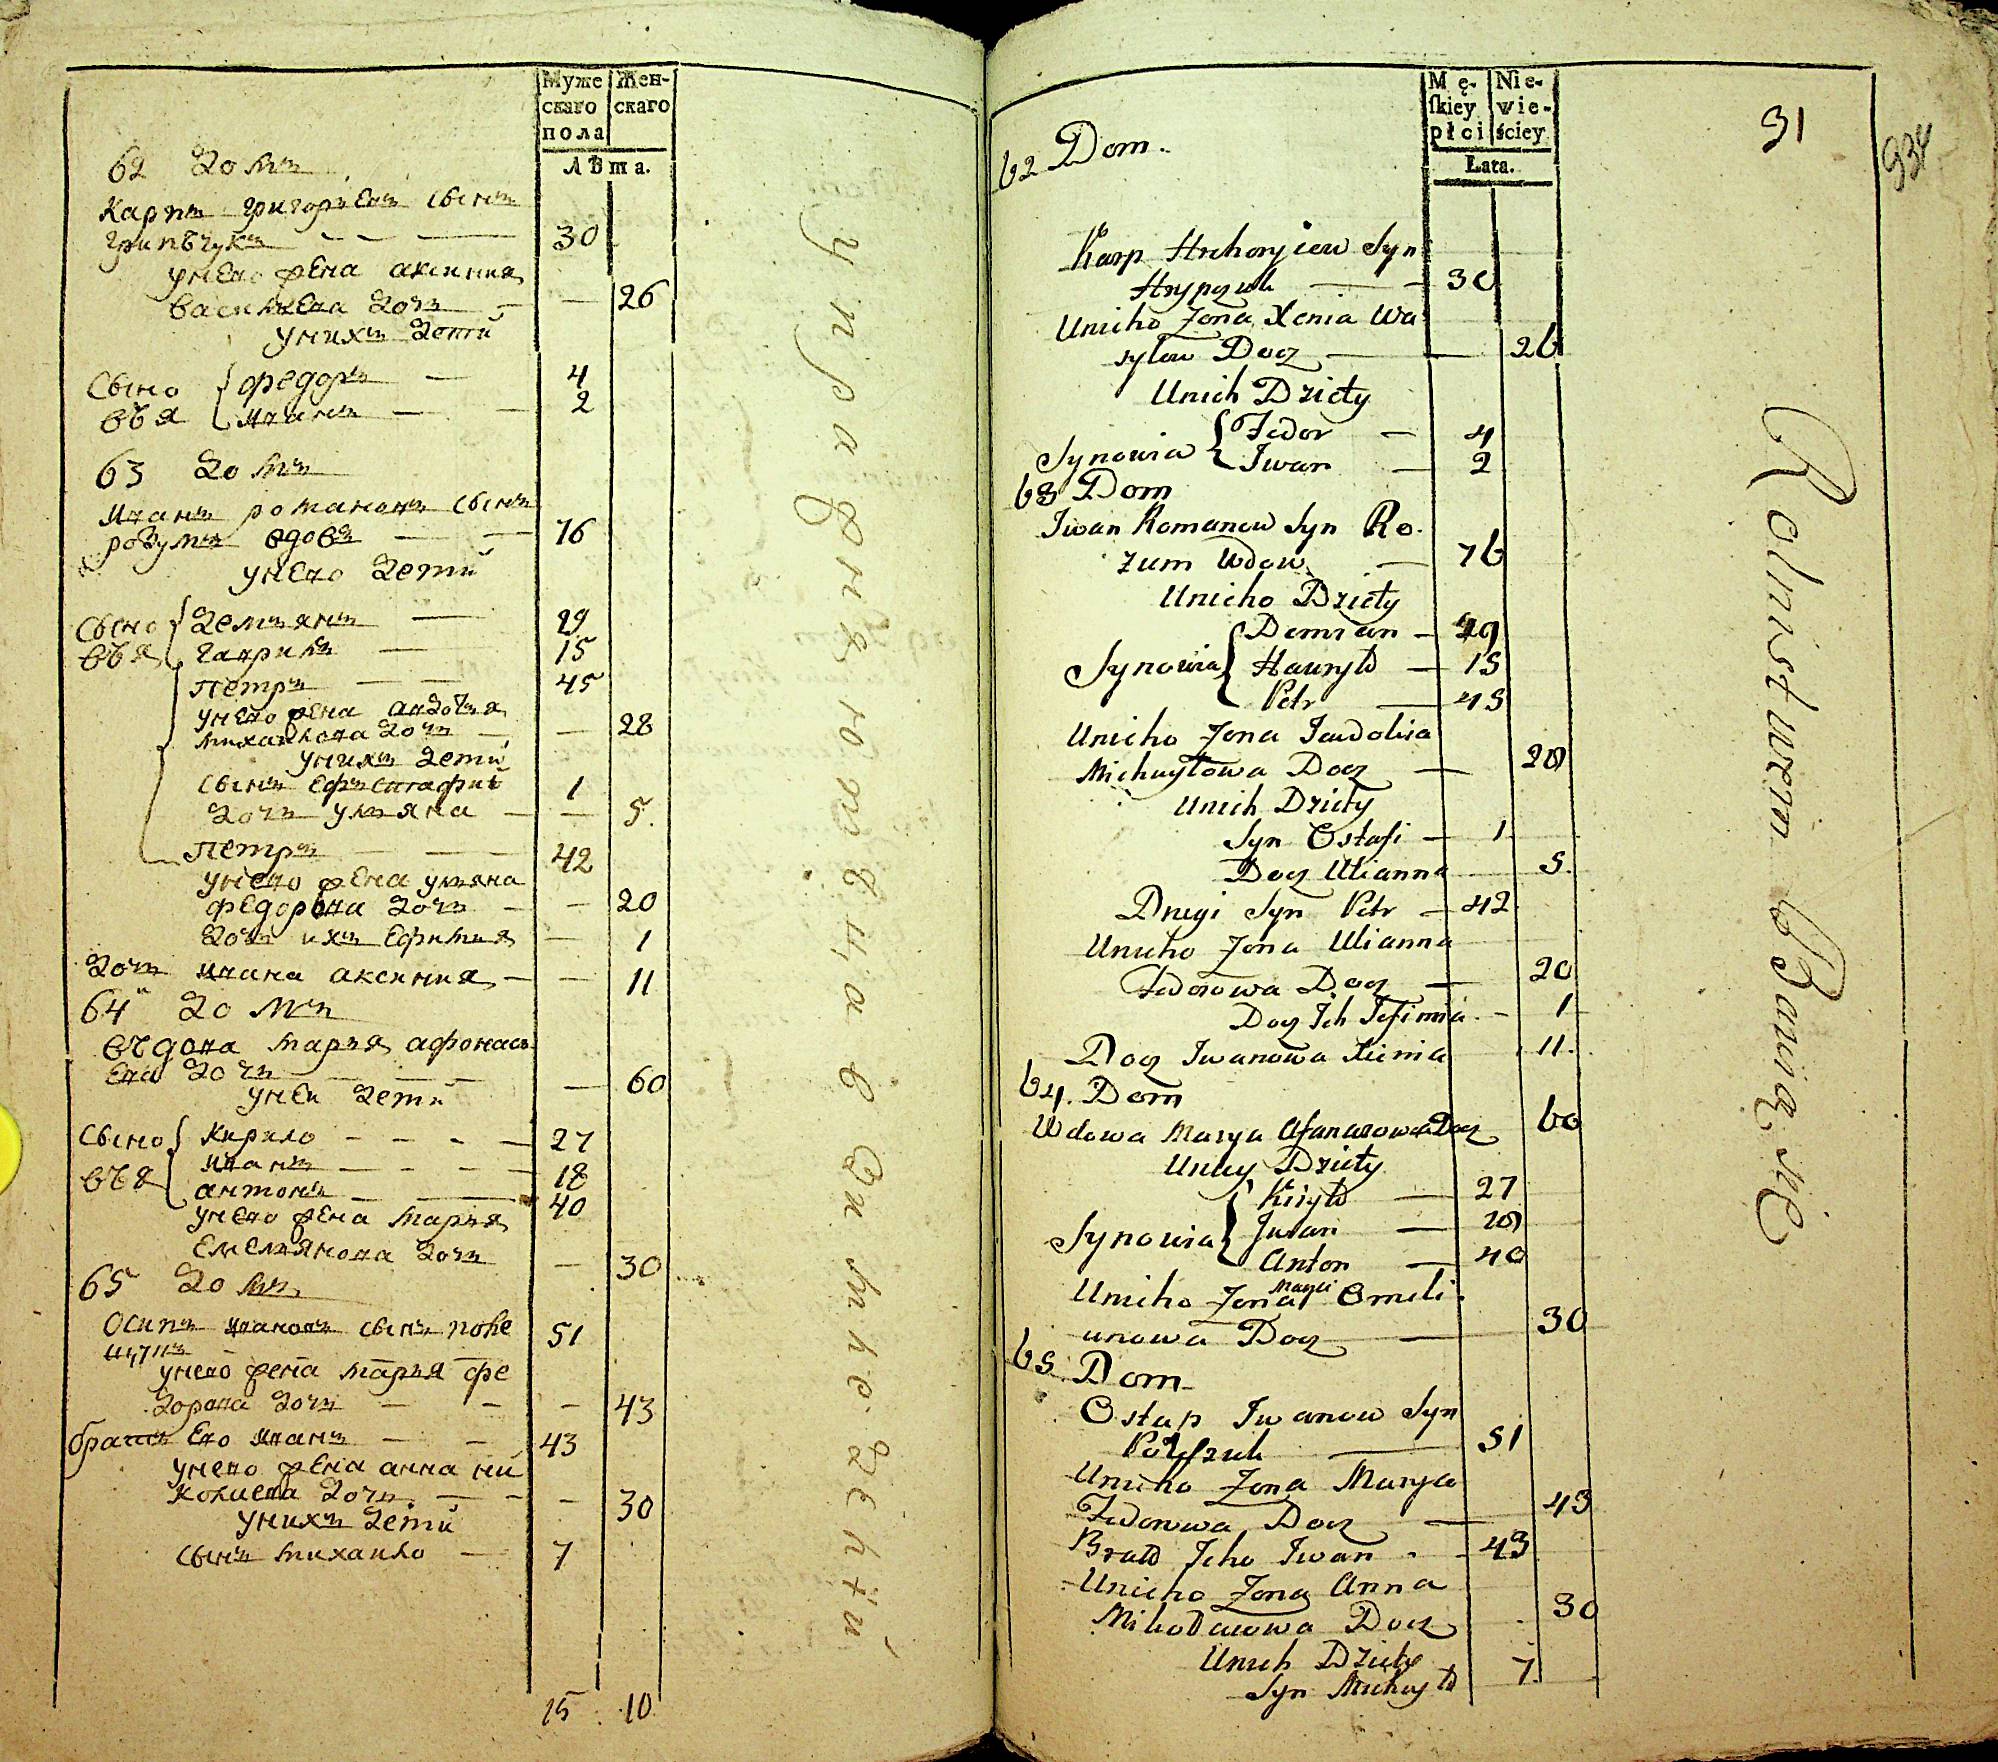 Муже
скаго
пола
Жен-
скаго
Лѣта.
62 Домъ
Карпъ Григорьевъ сынъ
Грипчукъ — 30
унего жена аксиния
василиева дочъ — 26
унихъ дети
сыно федоръ — 4
вья иванъ — 2
63 домъ
иванъ романовъ сынъ
розумъ вдовъ — 76
унего дети
сыно демьянъ — 29
вья гаврила — 15
петръ — 45
унего жена авдотья
михаилова дочъ — 28
унихъ дети
сынъ 1
дочъ ульяна — 5
петръ — 42
унего жена ульяна
федорова дочъ — 20
дочъ ихъ Ефимия — 1
дочъ ивана аксиния — 11
64 домъ
въдова марья афонась
ева дочъ — 60
унеи дети
сыно кирило — 27
вья иванъ — 18
антонъ — 40
унего жена марья
Емельянова дочъ — 30
65 домъ
Осипъ ивановъ сынъ 51
унего жена марья фе
дорова дочъ — 43
братъ Его иванъ — 43
унего жена анна ни
колаева дочъ — 30
унихъ дети
сынъ михаило — 7
15 10
Mę-
skiey
płci
Nie-
wie-
ściey
Lata.
31
934
62 Dom.
Karp Hrehoryiew Syn
Hrypczuk — 30
Unieho Zona Xenia Wa
sylew Docz — 26
Unich Dziety
Synowia Fedor — 4
Iwan — 2
63 Dom
Iwan Romanow Syn Ro
zum Wdow — 76
Unieho Dziety
Demian — 29
Synowia Hawryło — 15
Petr — 45
Unieho Zona Jewdokia
Michayłowa Docz — 28
Unich Dziety
Syn Ostafi — 1
Docz Ulianna 5.
Drugi Syn Petr — 42
Unieho Zona Ulianna
Fedorowa Docz — 20
Docz Ich Jefimia — 1
Docz Iwanowa Xienia 11.
64. Dom
Wdowa Marya Afanasowa Docz 60
Uniey Dziety
Kiryło — 27
Synowia Iwan — 18
Anton — 40
Unieho Zona Marya Omeli
anowa Docz — 30
65 Dom
Ostap Iwanow Syn
51
Unieho Zona Marya
Fedorowa Docz — 43
Brat Jeho Iwan - 43
Unieho Zona Anna
Mikołaiowa Docz 30
Unich Dziety
Syn Michayło 7